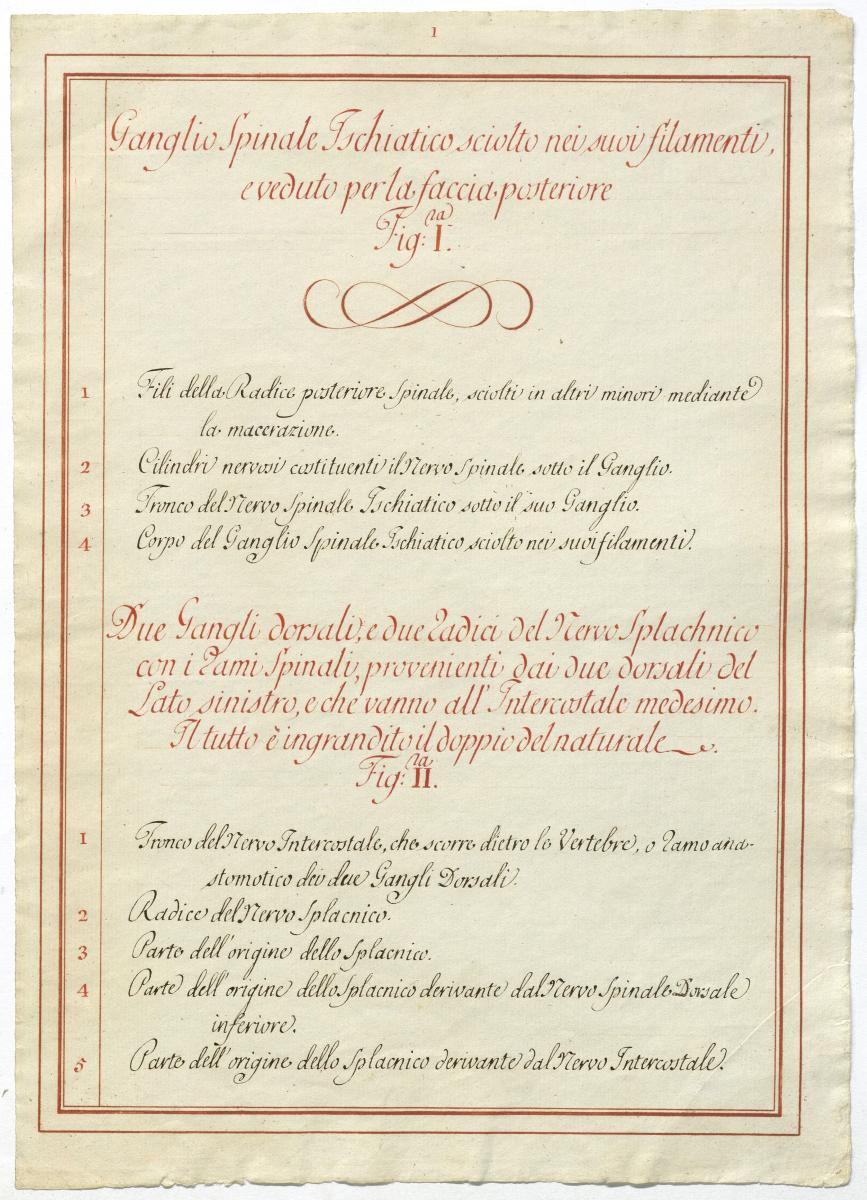 1
Ganglio Spinale Ischiatico sciolto nei suoi filamenti,
e veduto per la faccia posteriore
Fig:ra I.
1 Fili della Radice posteriore Spinale, sciolti in altri minori mediante
la macerazione.
2 Cilindri nervosi costituenti il Nervo Spinale sotto il Ganglio.
3 Tronco del Nervo Spinale Ischiatico sotto il suo Ganglio.
4 Corpo del Ganglio Spinale Ischiatico sciolto nei suoi filamenti.
Due Gangli dorsali, e due Radici del Nervo Splachnico
con i Rami Spinali, provenienti dai due dorsali del
Lato sinistro, e che vanno all' Intercostale medesimo.
Il tutto è ingrandito il doppio del naturale.
Fig:ra II.
1 Tronco del Nervo Intercostale, che scorre dietro le Vertebre, o Ramo ana-
stomotico dei due Gangli Dorsali.
2 Radice del Nervo Splacnico.
3 Parte dell'origine dello Splacnico.
4 Parte dell'origine dello Splacnico derivante dal Nervo Spinale Dorsale
inferiore.
5 Parte dell'origine dello Splacnico derivante dal Nervo Intercostale.